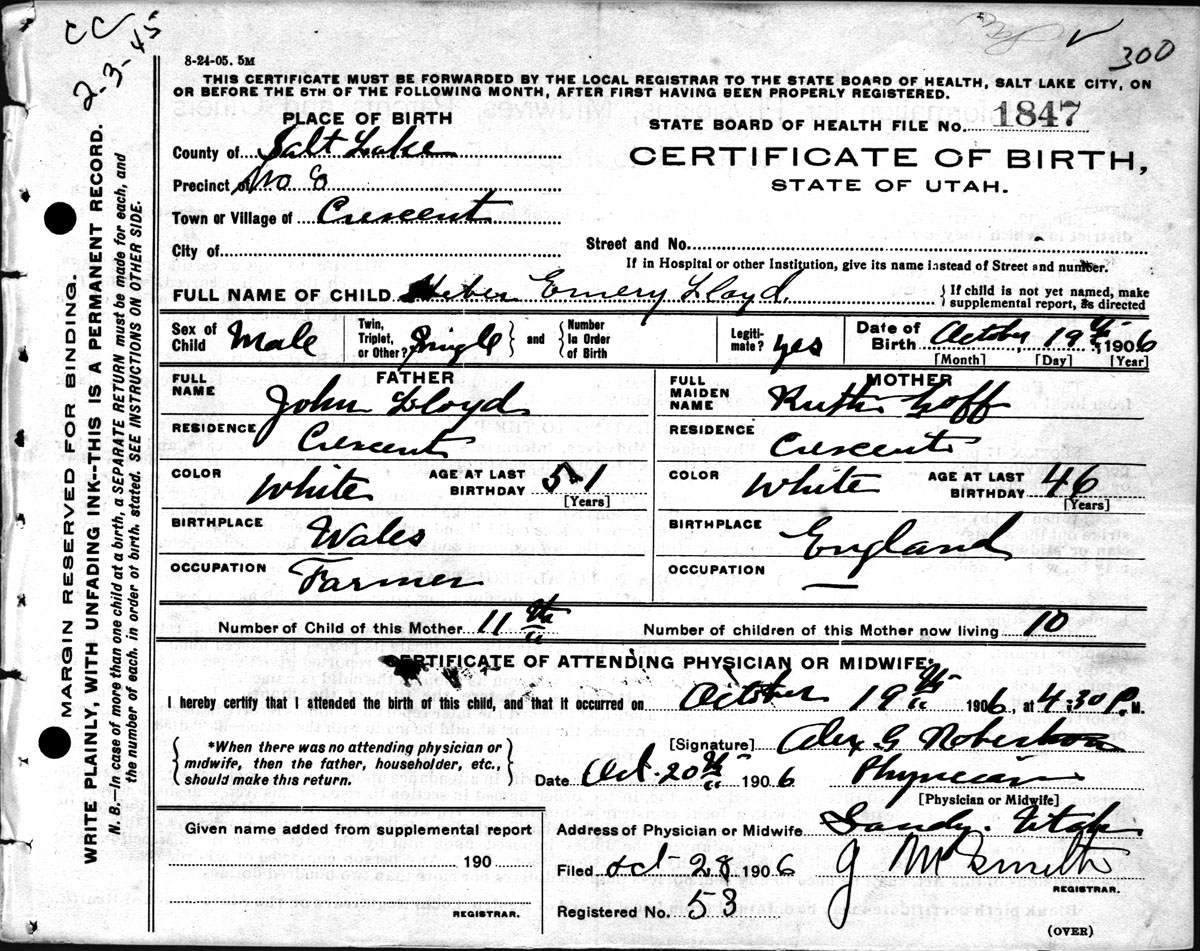 CC
2-3-45
300
8-24-05. 5M
THIS CERTIFICATE MUST BE FORWARDED BY THE LOCAL REGISTRAR TO THE STATE BOARD OF HEALTH, SALT LAKE CITY, ON
OR BEFORE THE 5TH OF THE FOLLOWING MONTH, AFTER FIRST HAVING BEEN PROPERLY REGISTERED.
PLACE OF BIRTH
STATE BOARD OF HEALTH FILE No. 1847
County of Salt Lake
CERTIFICATE OF BIRTH,
Precinct of No 8
STATE OF UTAH.
Town or Village of Crescent
City of
Street and No.
If in Hospital or other Institution, give its name instead of Street and number.
FULL NAME OF CHILD. Heber Emery Lloyd. { If child is not yet named, make supplemental report, as directed
Sex of Child Male Twin, Triplet, or Other? Single and Number In Order of Birth Legiti-mate? yes Date of Birth October, 19th, 1906
[Month] [Day] [Year]
FATHER
MOTHER
FULL NAME John Lloyd
FULL MAIDEN NAME Ruth Goff
RESIDENCE Crescent
RESIDENCE Crescent
COLOR White AGE AT LAST BIRTHDAY 51 [Years]
COLOR White AGE AT LAST BIRTHDAY 46 [Years]
BIRTHPLACE Wales
BIRTHPLACE England
OCCUPATION Farmer
OCCUPATION —
Number of Child of this Mother 11th Number of children of this Mother now living 10
CERTIFICATE OF ATTENDING PHYSICIAN OR MIDWIFE*
I hereby certify that I attended the birth of this child, and that it occurred on October 19th 1906, at 4:30 P. M.
{ *When there was no attending physician or midwife, then the father, householder, etc., should make this return. }
[Signature] Alex G Robertson
Date Oct. 20th 1906 Physician
[Physician or Midwife]
Given name added from supplemental report
190
REGISTRAR.
Address of Physician or Midwife Sandy. Utah
Filed Oct 28 1906 J M Smith
REGISTRAR.
Registered No. 53
(OVER)
MARGIN RESERVED FOR BINDING.
WRITE PLAINLY, WITH UNFADING INK--THIS IS A PERMANENT RECORD.
N. B.—In case of more than one child at a birth, a SEPARATE RETURN must be made for each, and
the number of each. in order of birth. stated. SEE INSTRUCTIONS ON OTHER SIDE.